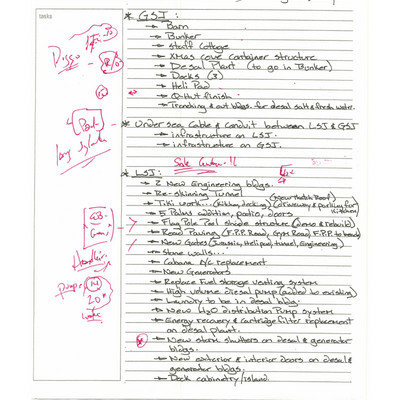 tasks
* GSJ:
→ Barn
→ Bunker
→ Staff Cottage
→ Xmas cave container structure
→ Desal Plant (to go in Bunker)
→ Docks (3)
→ Heli Pad
→ Q-Hut finish
→ Trenching & out bldgs. for desal salt & fresh water.
* Under sea Cable & Conduit between LSJ & GSJ
→ infrastructure on LSJ.
→ infrastructure on GSJ.
* LSJ:
→ 2 New Engineering bldgs.
→ Re-skinning Tunnel
→ Tiki work... (New thatch Roof)
(driveway & parking for
→ 5 Palms addition, patio, doors
→ Flag Pole Pad shade structure (demo & rebuild)
→ Road Paving (F.P.P. Road, Gym Road, F.P.P. to
→ New Gates (heli pad, tunnel, Engineering)
→ Stone walls...
→ Cabana A/C replacement
→ New Generators
→ Replace Fuel storage venting system
→ High volume diesel pump (added to existing)
→ Laundry to be in desal bldg.
→ New H2O distribution Pump system
→ Energy recovery & cartridge filter replacement
on desal plant.
→ New storm shutters on desal & generator
bldgs.
→ New exterior & interior doors on desal &
generator bldgs.
→ Dock cabinetry/island.
pump
20"